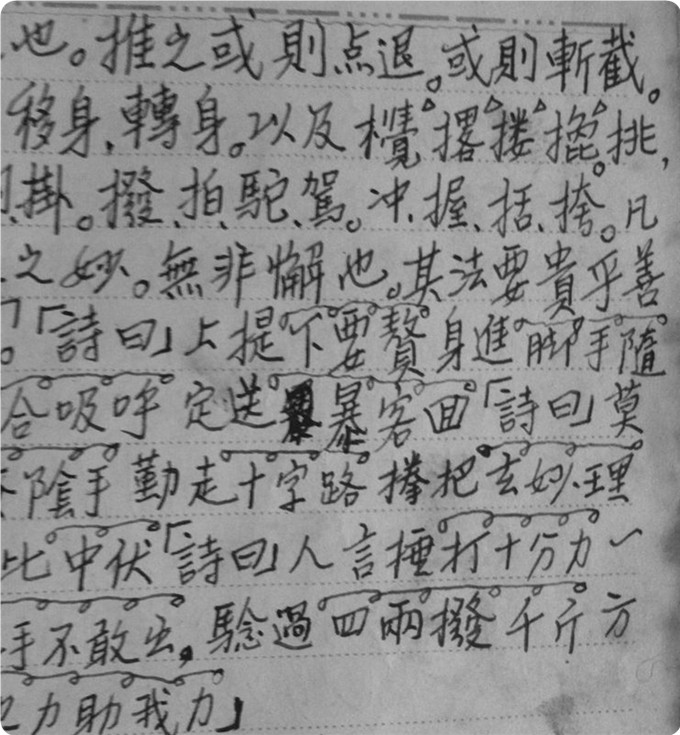 也。推之或則点退。或則斬截。
移身、轉身。以及攬撂搂摁。挑,
掛。撥、拍、駝、駕。冲、握、括、挎。凡
之妙。無非懈也。其法要貴乎善
。「詩曰」上提下要贅身進脚手隨
合吸呼 定送暴客回「詩曰」莫
陰手勤走十字路 捧把玄妙理
比中伏「詩曰」人言捶打十分力一
手不敢出。騐過四兩撥千斤方
力助我力」